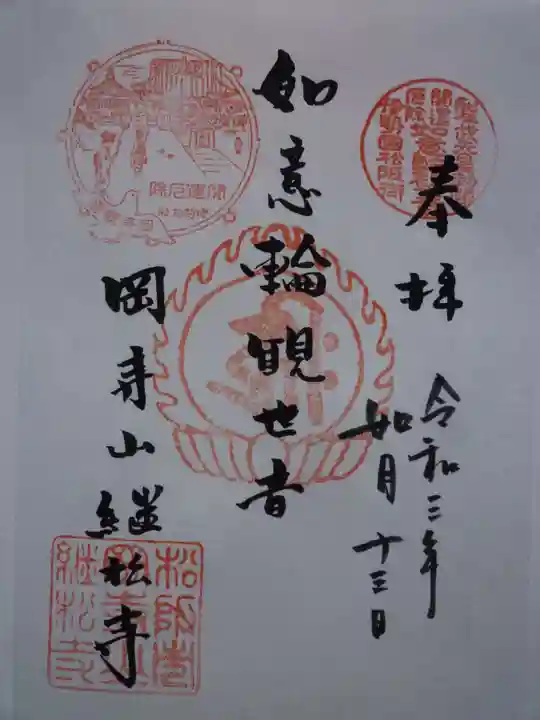 奉拝
令和三年
如月十三日
如意輪観世音
岡寺山継松寺
開運厄除
松阪
継松寺